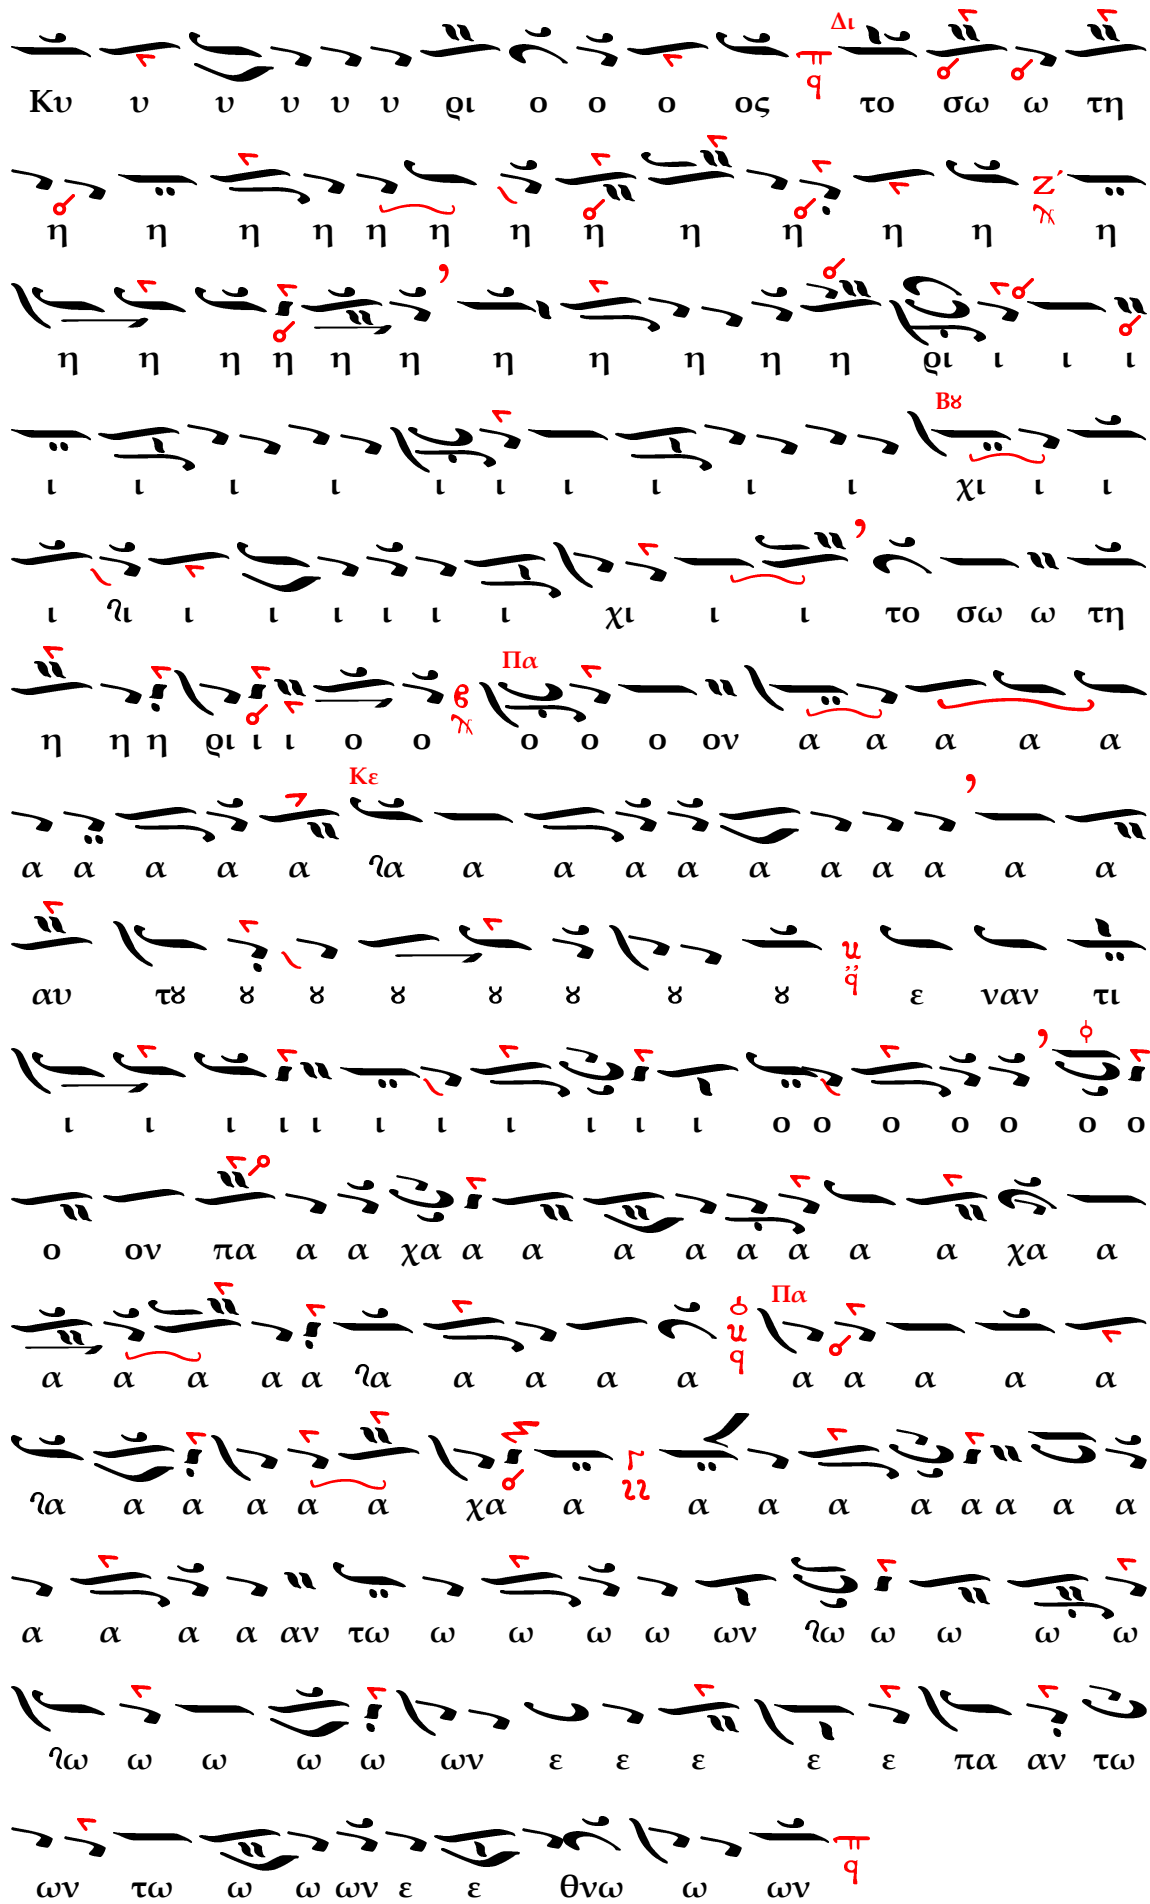 Δι
Κυ υ υ υ υ υ ρι ο ο ο ος π q το σω ω τη
η η η η η η η η η η η η Ζ΄ η
η η η η η η η η η η η ρι ι ι ι
Βȣ
ι ι ι ι ι ι ι ι ι ι χι ι ι
ι ϑι ι ι ι ι ι ι χι ι ι το σω ω τη
Πα
η η η ρι ι ι ο ο ο ο ο ον α α α α α
Κε
α α α α α ϑα α α α α α α α α α α
αυ τȣ ȣ ȣ ȣ ȣ ȣ ȣ ȣ q ε ναν τι
ι ι ι ι ι ι ι ι ι ι ι ο ο ο ο ο ο ο
ο ον πα α α χα α α α α α α α α χα α
Πα
α α α α α ϑα α α α α q α α α α α
ϑα α α α α α χα α Γ α α α α α α α α
α α α α αν τω ω ω ω ω ων ϑω ω ω ω ω
ϑω ω ω ω ω ων ε ε ε ε ε πα αν τω
ων τω ω ω ων ε ε θνω ω ων π q